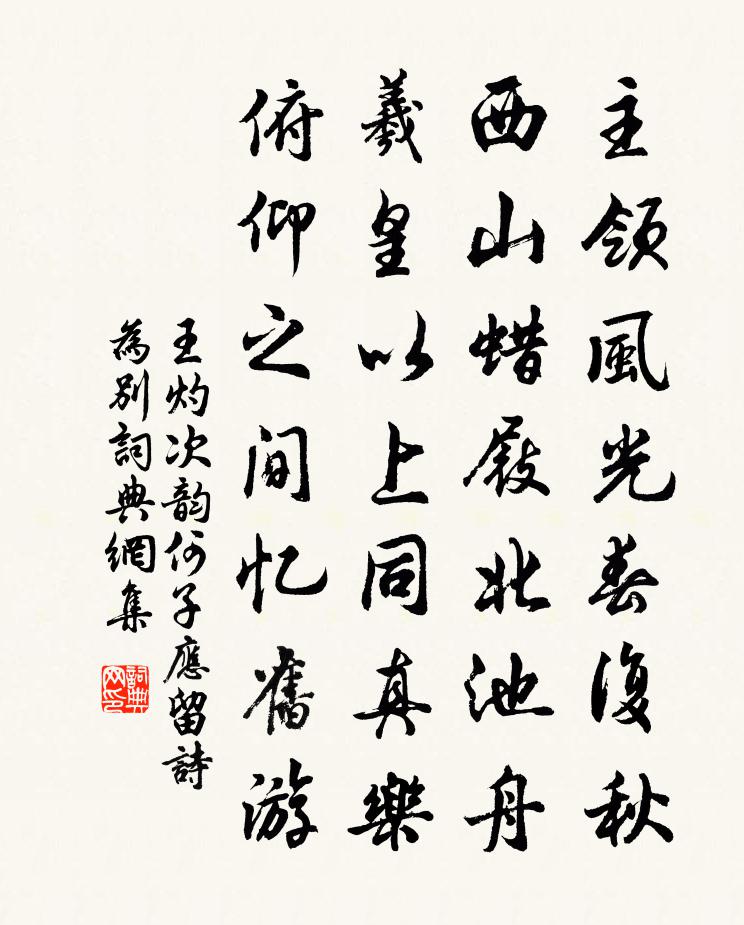 主領風光春復秋
西山蜡屐北池舟
羲皇以上同真樂
俯仰之间忆舊游
王灼次韵何子應留詩
為別詞典網集
詞典網印